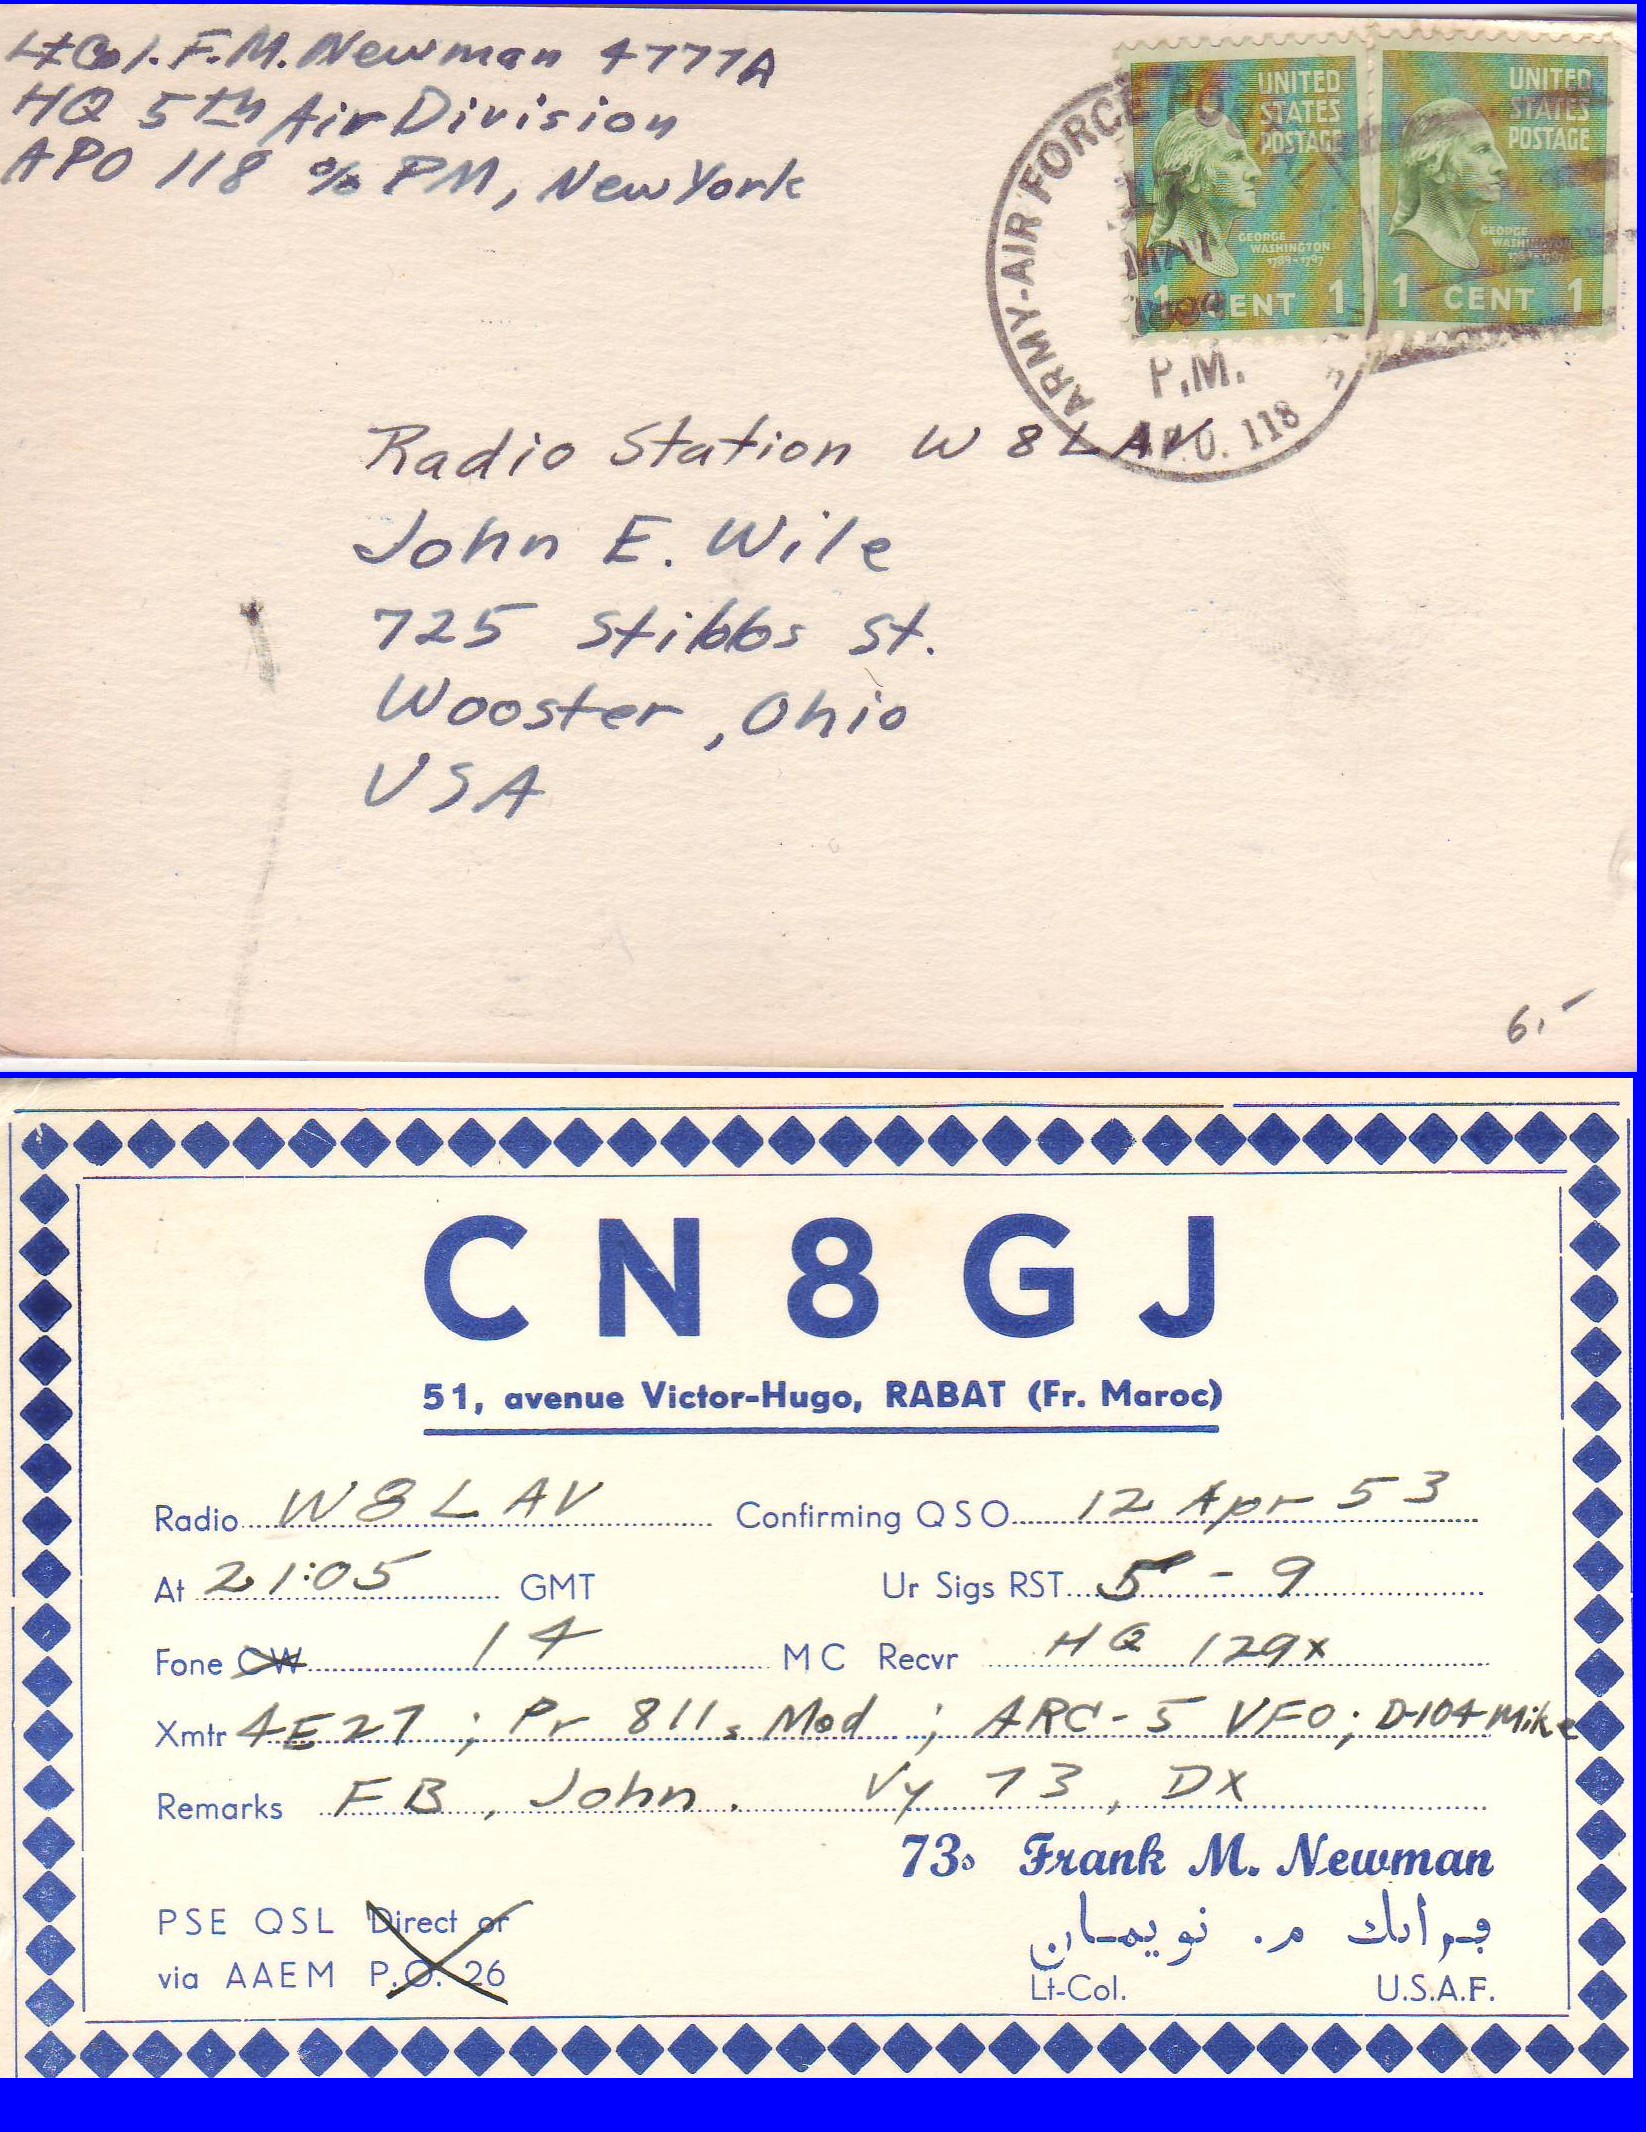 Lt Col. F.M. Newman 4777A
HQ 5th Air Division
APO 118 % PM, New York
ARMY-AIR FORCE
17
MAY
P.M.
A.P.O. 118
UNITED STATES POSTAGE
GEORGE WASHINGTON
1789-1797
1 CENT 1
UNITED STATES POSTAGE
GEORGE WASHINGTON
1 CENT 1
Radio Station W8LAV
John E. Wile
725 Stibbs St.
Wooster, Ohio
USA
6.-
CN8GJ
51, avenue Victor-Hugo, RABAT (Fr. Maroc)
Radio W8LAV Confirming QSO 12 Apr 53
At 21:05 GMT Ur Sigs RST 5-9
Fone CW 14 MC Recvr HQ 129x
Xmtr 4E27; Pr 811s Mod; ARC-5 VFO; D-104 Mike
Remarks FB, John. Vy 73, DX
73s Frank M. Newman
فرانك م. نويمان
PSE QSL Direct or
via AAEM P.O. 26
Lt-Col. U.S.A.F.